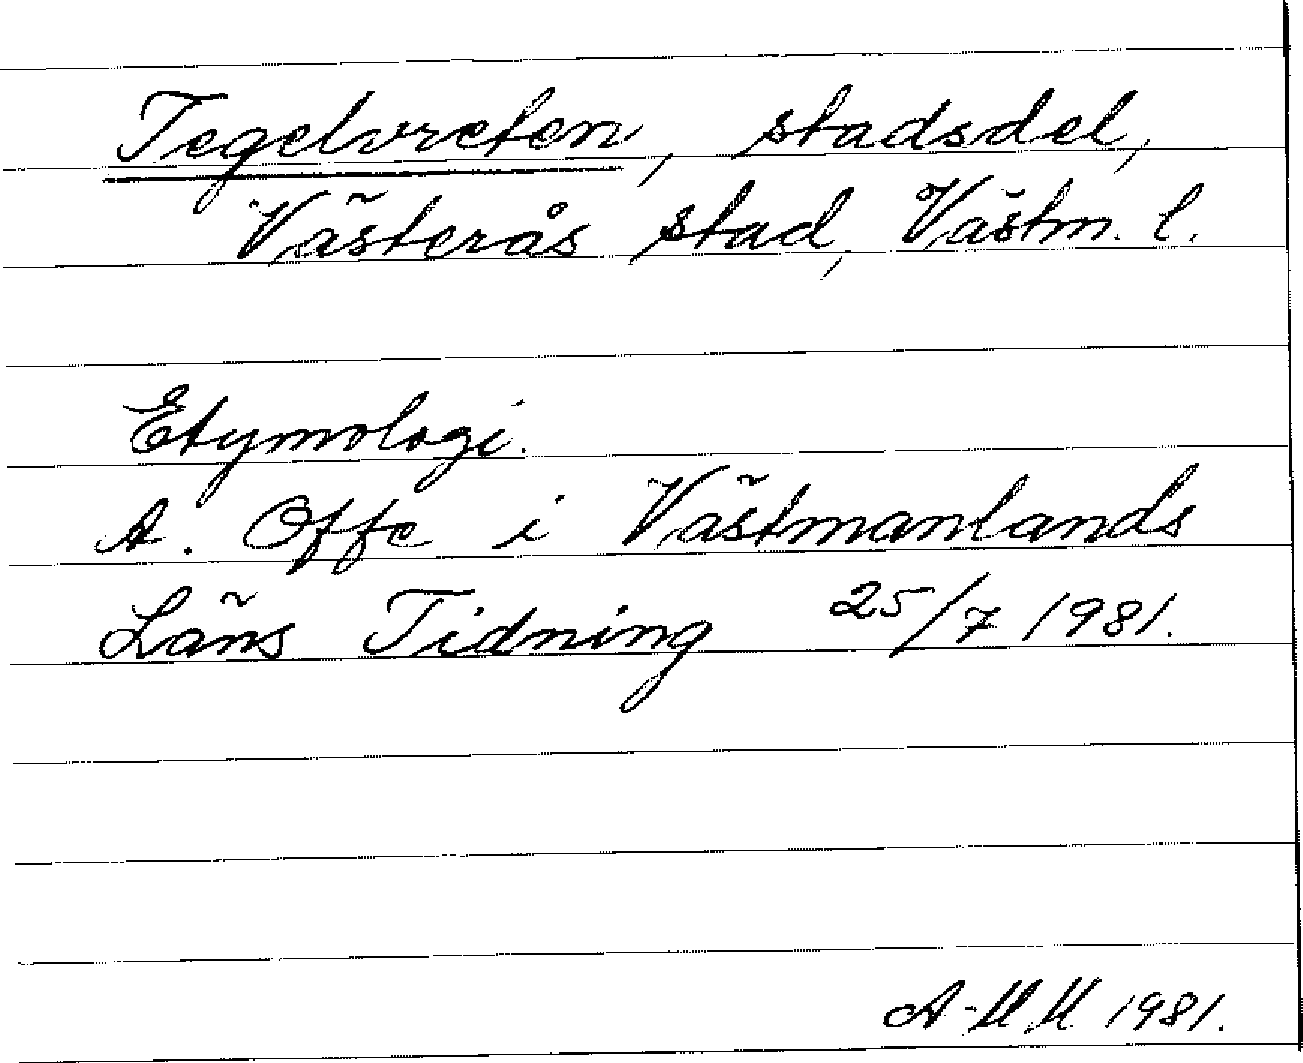 Tegelvreten, stadsdel,
Västerås stad, Västm. l.
Etymologi.
A. Offe i Västmanlands
Läns Tidning 25/7 1981.
A-MM 1981.